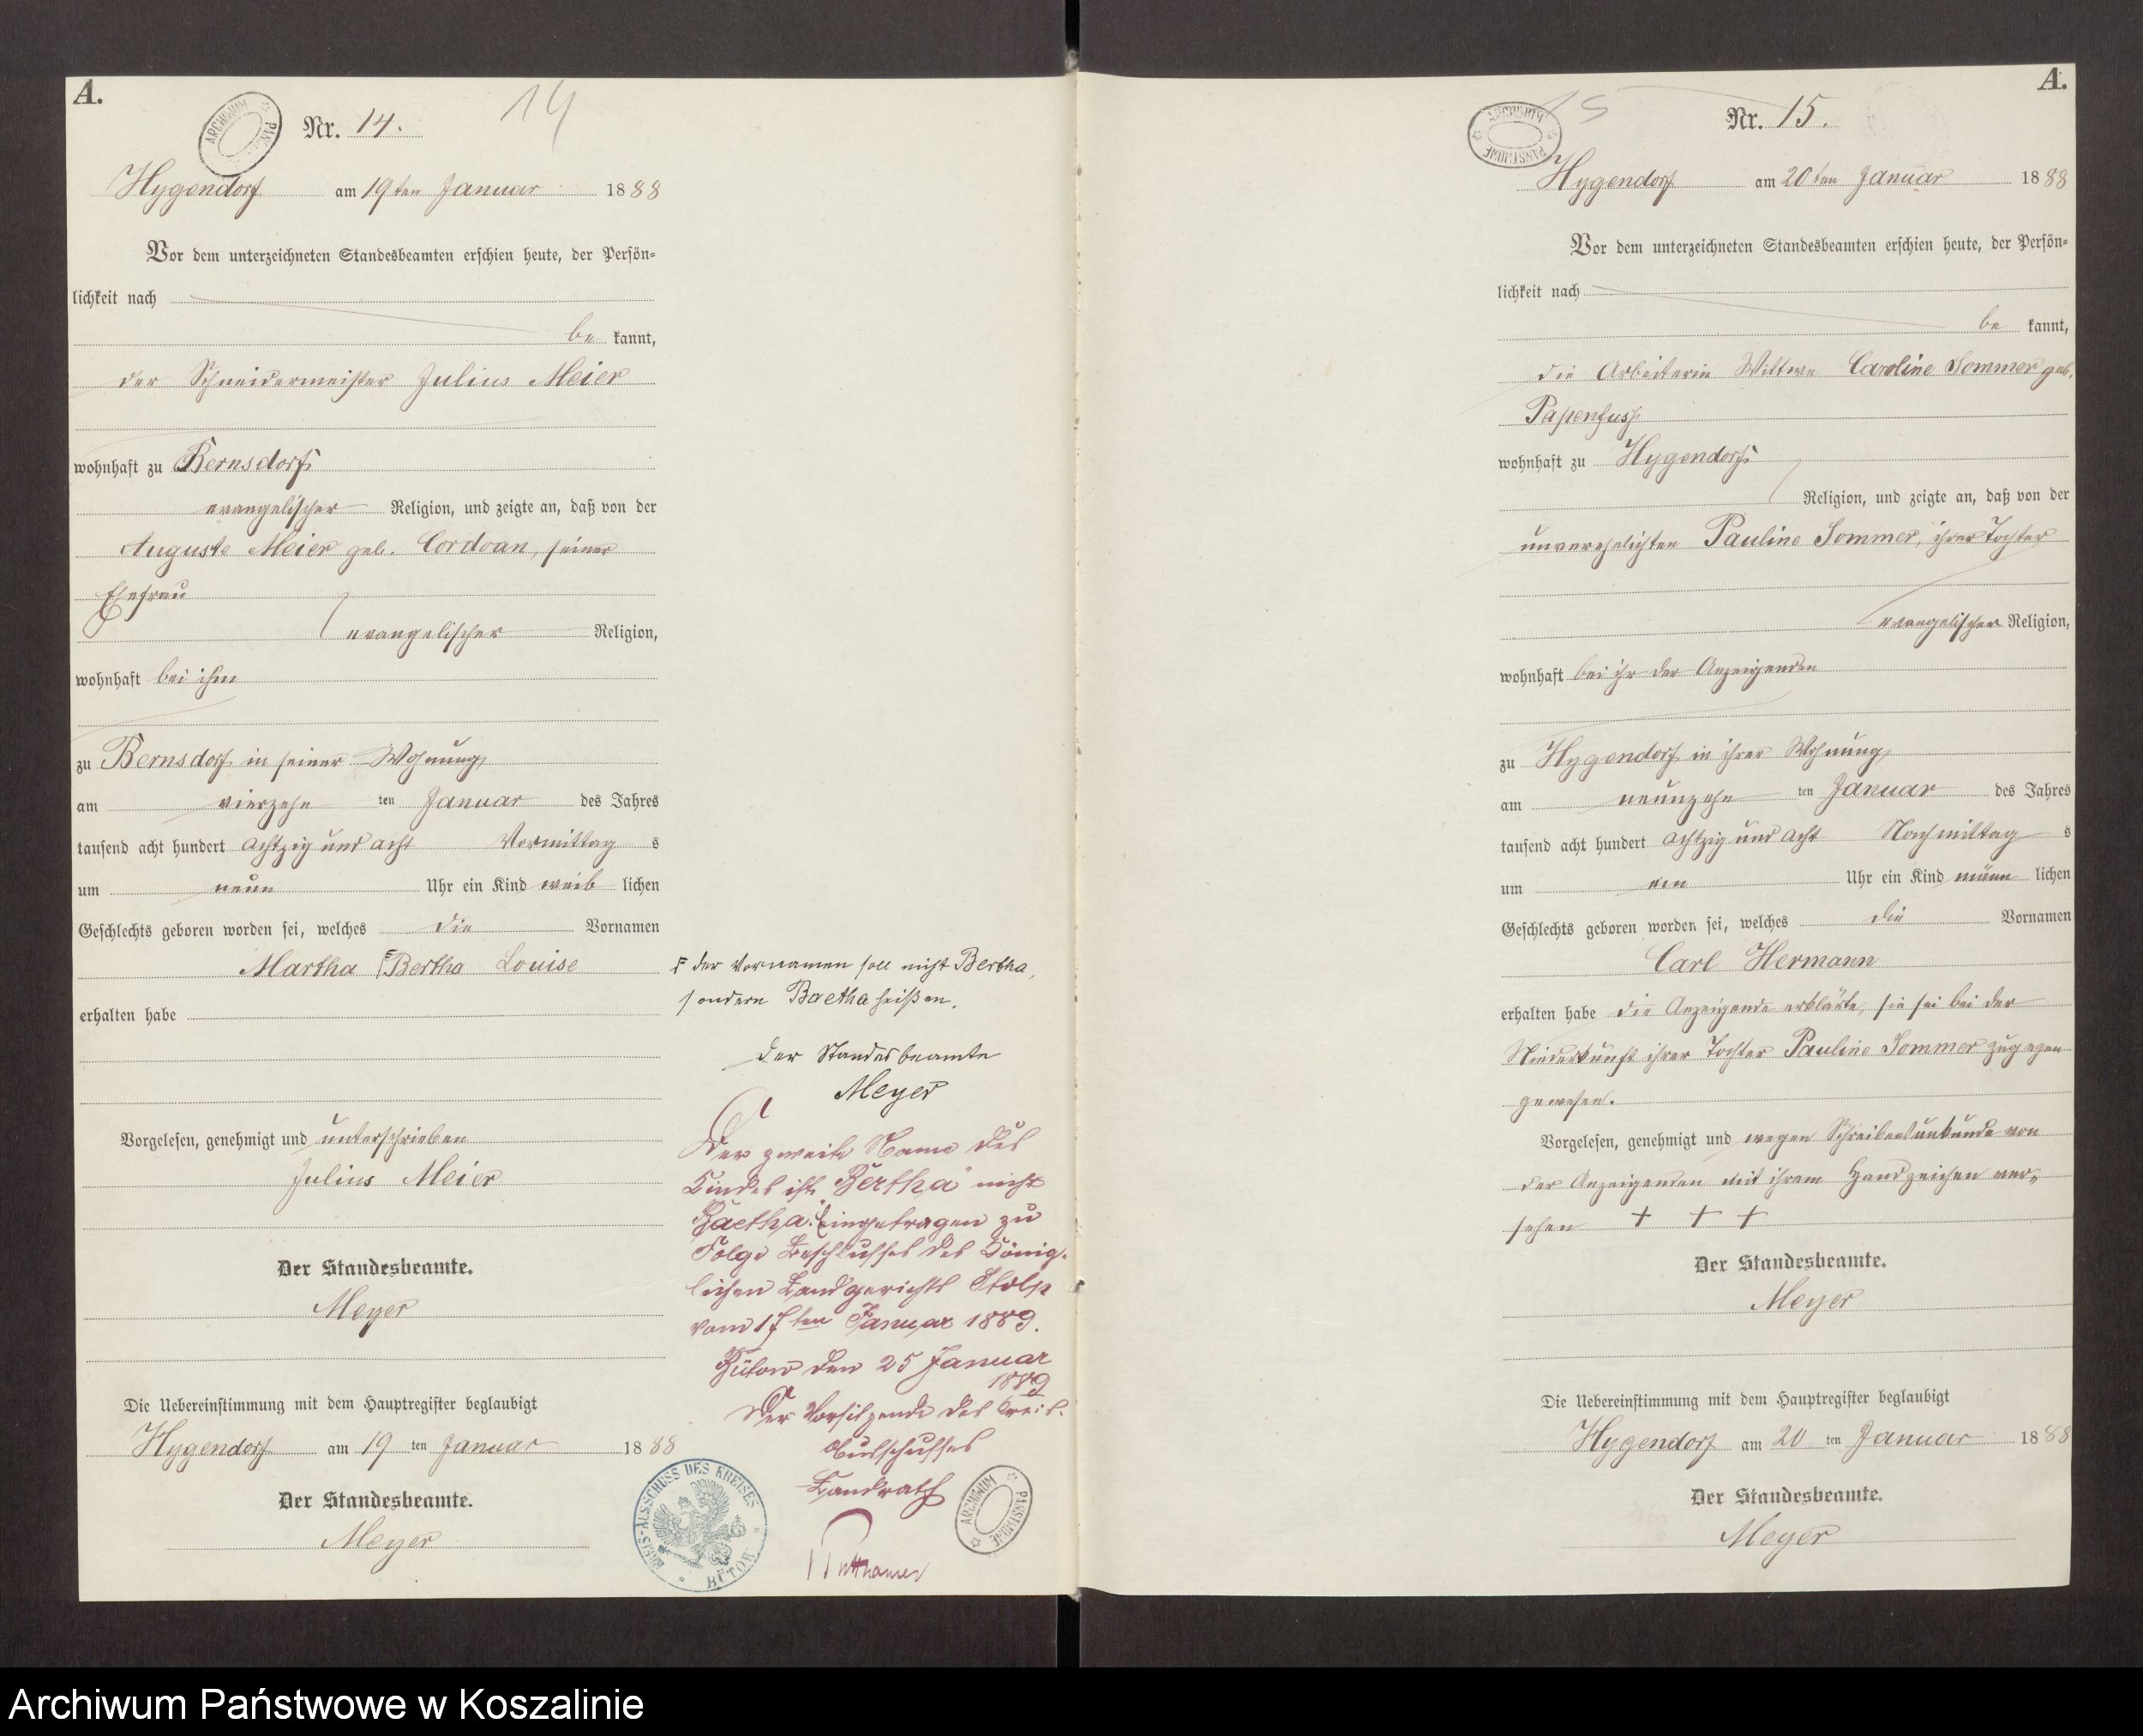 A.
Nr. 14.
14
ARCHIWUM PAŃSTWOWE
Hygendorf am 19ten Januar 1888
Vor dem unterzeichneten Standesbeamten erschien heute, der Persön=
lichkeit nach
be kannt,
der Schneidermeister Julius Meier
wohnhaft zu Bernsdorf
evangelischer Religion, und zeigte an, daß von der
Auguste Meier geb. Cordoan, seiner
Ehefrau
evangelischer Religion,
wohnhaft bei ihm
zu Bernsdorf in seiner Wohnung,
am vierzehn ten Januar des Jahres
tausend acht hundert achtzig und acht Vormittag s
um neun Uhr ein Kind weib lichen
Geschlechts geboren worden sei, welches die Vornamen
Martha Bertha Louise
erhalten habe
Vorgelesen, genehmigt und unterschrieben
Julius Meier
Der Standesbeamte.
Meyer
Die Uebereinstimmung mit dem Hauptregister beglaubigt
Hygendorf am 19 ten Januar 1888
Der Standesbeamte.
Meyer
der Vornamen soll nicht Bertha,
sondern Baetha heißen.
Der Standesbeamte
Meyer
Der zweite Name des
Kindes ist "Bertha" nicht
Baetha. Eingetragen zu
Folge Beschlusses des König-
lichen Landgerichts Stolp
vom 17ten Januar 1889.
Bütow den 25 Januar
1889
Der Vorsitzende des Kreis-
Ausschusses
Landrath
Puttkamer
KREIS-AUSSCHUSS DES KREISES BÜTOW
ARCHIWUM PAŃSTWOWE
A.
15
Nr. 15.
ARCHIWUM PAŃSTWOWE
Hygendorf am 20ten Januar 1888
Vor dem unterzeichneten Standesbeamten erschien heute, der Persön=
lichkeit nach
be kannt,
die Arbeiterin Wittwe Caroline Sommer geb.
Papenfuss
wohnhaft zu Hygendorf
Religion, und zeigte an, daß von der
unverehelichten Pauline Sommer, ihrer Tochter
evangelischer Religion,
wohnhaft bei ihr der Anzeigenden
zu Hygendorf in ihrer Wohnung,
am neunzehn ten Januar des Jahres
tausend acht hundert achtzig und acht Nachmittag s
um ein Uhr ein Kind männ lichen
Geschlechts geboren worden sei, welches die Vornamen
Carl Hermann
erhalten habe die Anzeigende erklärte, sie sei bei der
Niederkunft ihrer Tochter Pauline Sommer zugegen
gewesen.
Vorgelesen, genehmigt und wegen Schreibensunkunde von
der Anzeigenden mit ihrem Handzeichen ver-
sehen + + +
Der Standesbeamte.
Meyer
Die Uebereinstimmung mit dem Hauptregister beglaubigt
Hygendorf am 20 ten Januar 1888
Der Standesbeamte.
Meyer
Archiwum Państwowe w Koszalinie